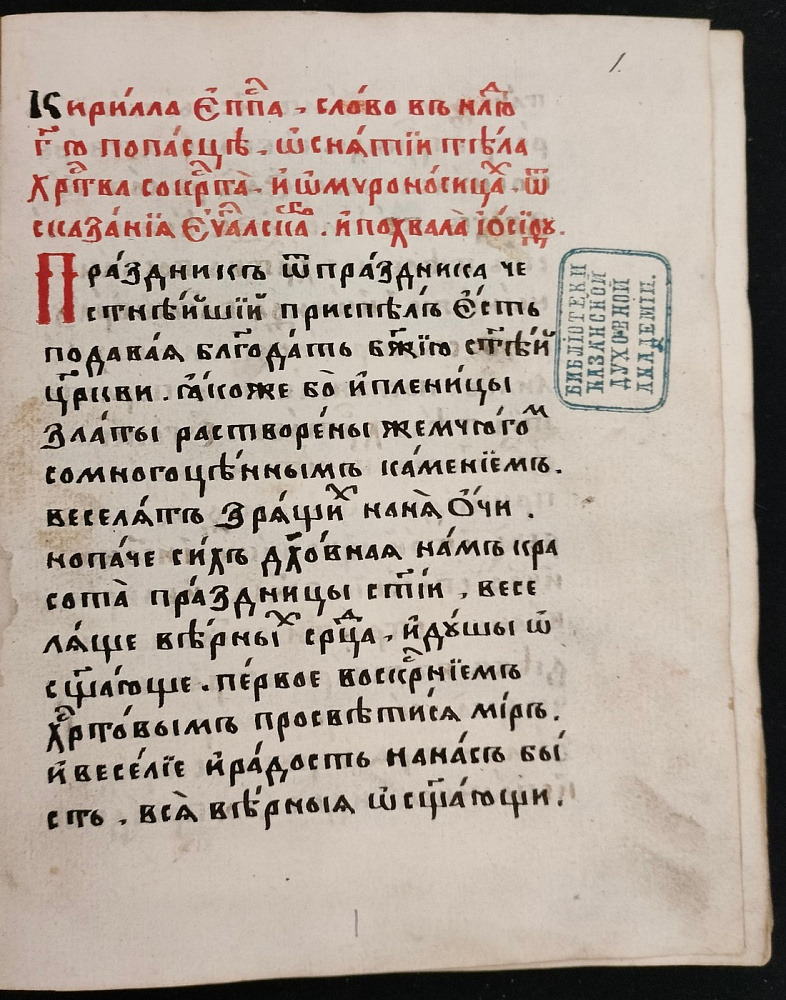 1.
Кири́лла Е҆пⷭ҇па . сло́во въ нⷣлю
г҃ ю попа́сцѣ . ѡ҆сня́тїи тѣ́ла
Хрⷭ҇това сокрⷭ҇та̀ . и҆ ѡ҆мѵроно́сицаⷯ . ѿ
сказа́нїѧ Е҆ѵⷢ҇альскаⷢ҇ . и҆ похвала̀ і҆ѡ́сїфꙋ .
Пра́здникъ ѿ пра́здника че
стнѣ́йшїй приспѣ́лъ Е҆́сть
подава́ѧ блгⷣода́ть бж҃їю ст҃ѣ́й
цр҃кви . ꙗ҆́коже бо̀ и҆ пленицы
златы̀ растворе́ны жемчю́гоⷨ
сомногоцѣ́ннымъ ка́менїемъ .
веселѧ́тъ зрѧ́щиⷯ нанѧ̀ Ѻ҆́чи .
нопа́че си́хъ дх҃о́внаѧ на́мъ кра
сота̀ пра́здницы ст҃і́и , весе
лѧ́ще вѣ́рныⷯ срⷣца , и҆ дꙋ́шы ѡ҆
сщ҃а́юще . пе́рвое воскрⷭ҇нїемъ
Хрⷭ҇то́вымъ просвѣти́сѧ мі́ръ .
и҆ весе́лїе и҆ ра́дость нана́съ бы́
сть . всѧ̀ вѣ́рныѧ ѡ҆сщ҃а́ющи .
БИБЛІОТЕКИ
КАЗАНСКОЙ
ДУХОВНОЙ
АКАДЕМІИ.